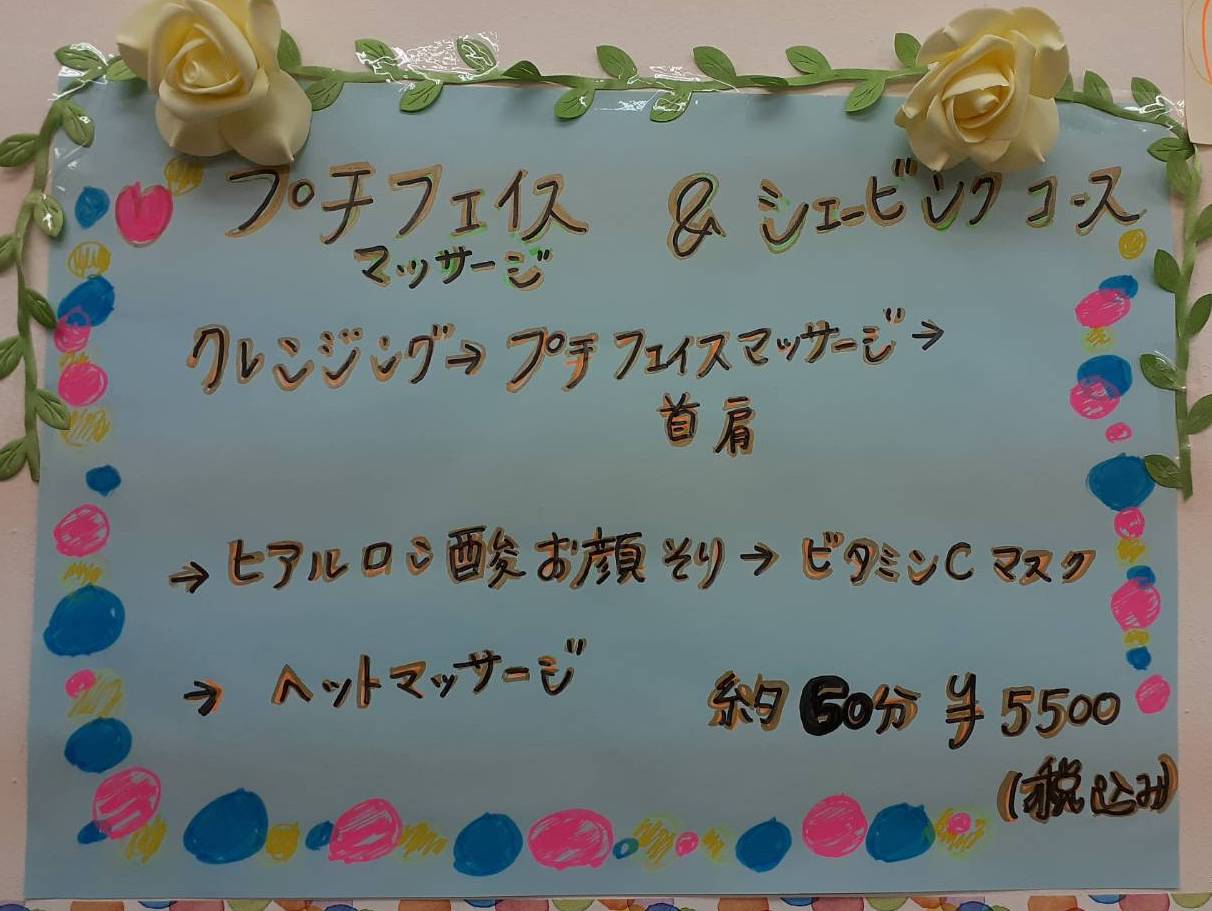 プチフェイス & シェービングコース
マッサージ
クレンジング→プチフェイスマッサージ→
首肩
→ヒアルロン酸お顔そり→ビタミンCマスク
→ヘットマッサージ
約60分¥5500
(税込み)